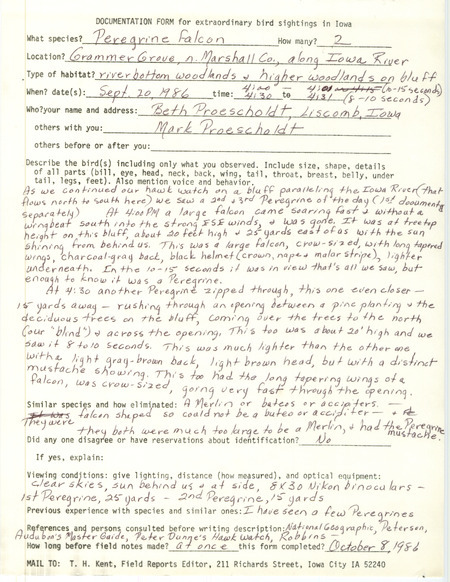 DOCUMENTATION FORM for extraordinary bird sightings in Iowa
What species? Peregrine Falcon How many? 2
Location? Grammer Grove, n. Marshall Co., along Iowa River
Type of habitat? river bottom woodlands & higher woodlands on bluff
When? date(s): Sept. 20, 1986 time: 4:00 4:30 to 4:01 4:31 (10-15 seconds) (8-10 seconds)
Who? your name and address: Beth Proescholdt, Liscomb, Iowa
others with you: Mark Proescholdt
others before or after you:
Describe the bird(s) including only what you observed. Include size, shape, details
of all parts (bill, eye, head, neck, back, wing, tail, throat, breast, belly, under
tail, legs, feet). Also mention voice and behavior.
As we continued our hawk watch on a bluff paralleling the Iowa River (that
flows north to south here) we saw a 2nd & 3rd Peregrine of the day (1st documented
separately) At 4:00 PM a large falcon came soaring fast & without a
wingbeat south into the strong SSE winds, & was gone. It was at treetop
height on this bluff, about 20 feet high & 25 yards east of us with the sun
shining from behind us. This was a large falcon, crow-sized, with long tapered
wings, charcoal-gray back, black helmet (crown, nape & malar stripe), lighter
underneath. In the 10-15 seconds it was in view that's all we saw, but
enough to know it was a Peregrine.
At 4:30 another Peregrine zipped through, this one even closer -
15 yards away - rushing through an opening between a pine planting & the
deciduous trees on the bluff, coming over the trees to the north
(our "blind") & across the opening. This too was about 20' high and we
saw it 8 to 10 seconds. This was much lighter than the other one
with a light gray-brown back, light brown head, but with a distinct
mustache showing. This too had the long tapering wings of a
falcon, was crow-sized, going very fast through the opening.
Similar species and how eliminated: A Merlin or buteos or accipiters. -
They were falcon shaped so could not be a buteo or accipiter - &
they both were much too large to be a Merlin, & had the Peregrine mustache.
Did any one disagree or have reservations about identification? No
If yes, explain:
Viewing conditions: give lighting, distance (how measured), and optical equipment:
clear skies, sun behind us & at side, 8x30 Nikon binoculars -
1st Peregrine, 25 yards - 2nd Peregrine, 15 yards
Previous experience with species and similar ones: I have seen a few Peregrines
References and persons consulted before writing description: National Geographic, Peterson,
Audubon's Master Guide, Peter Dunne's Hawk Watch, Robbins -
How long before field notes made? at once this form completed? October 8, 1986
MAIL TO: T. H. Kent, Field Reports Editor, 211 Richards Street, Iowa City IA 52240